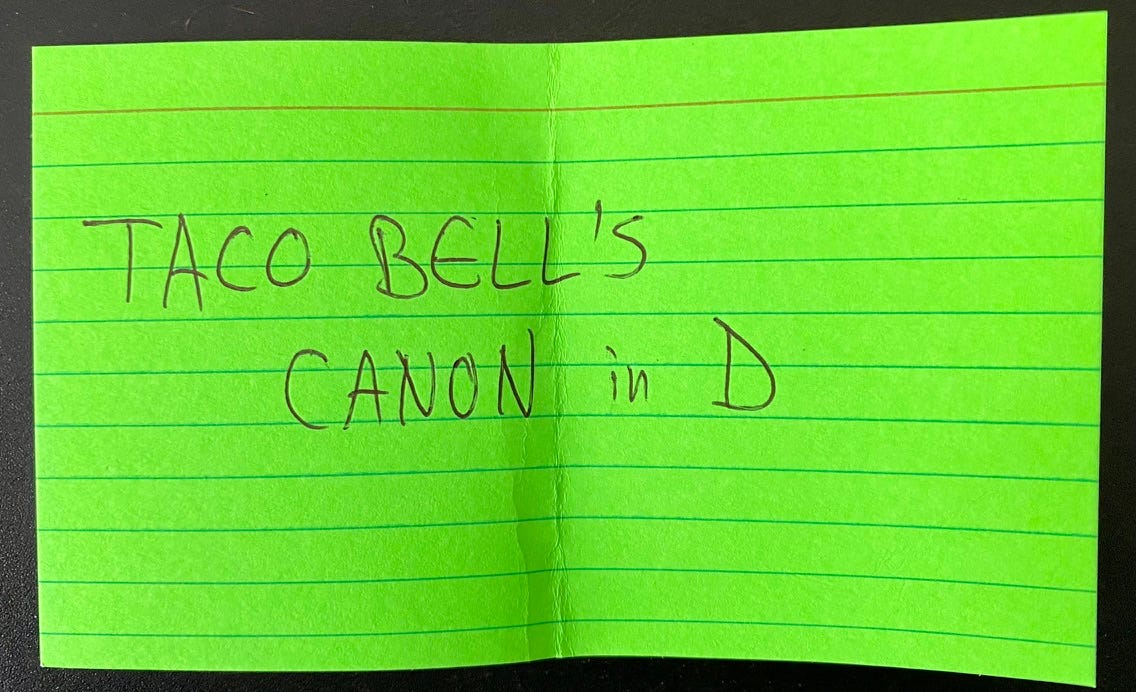 TACO BELL'S
CANON in D